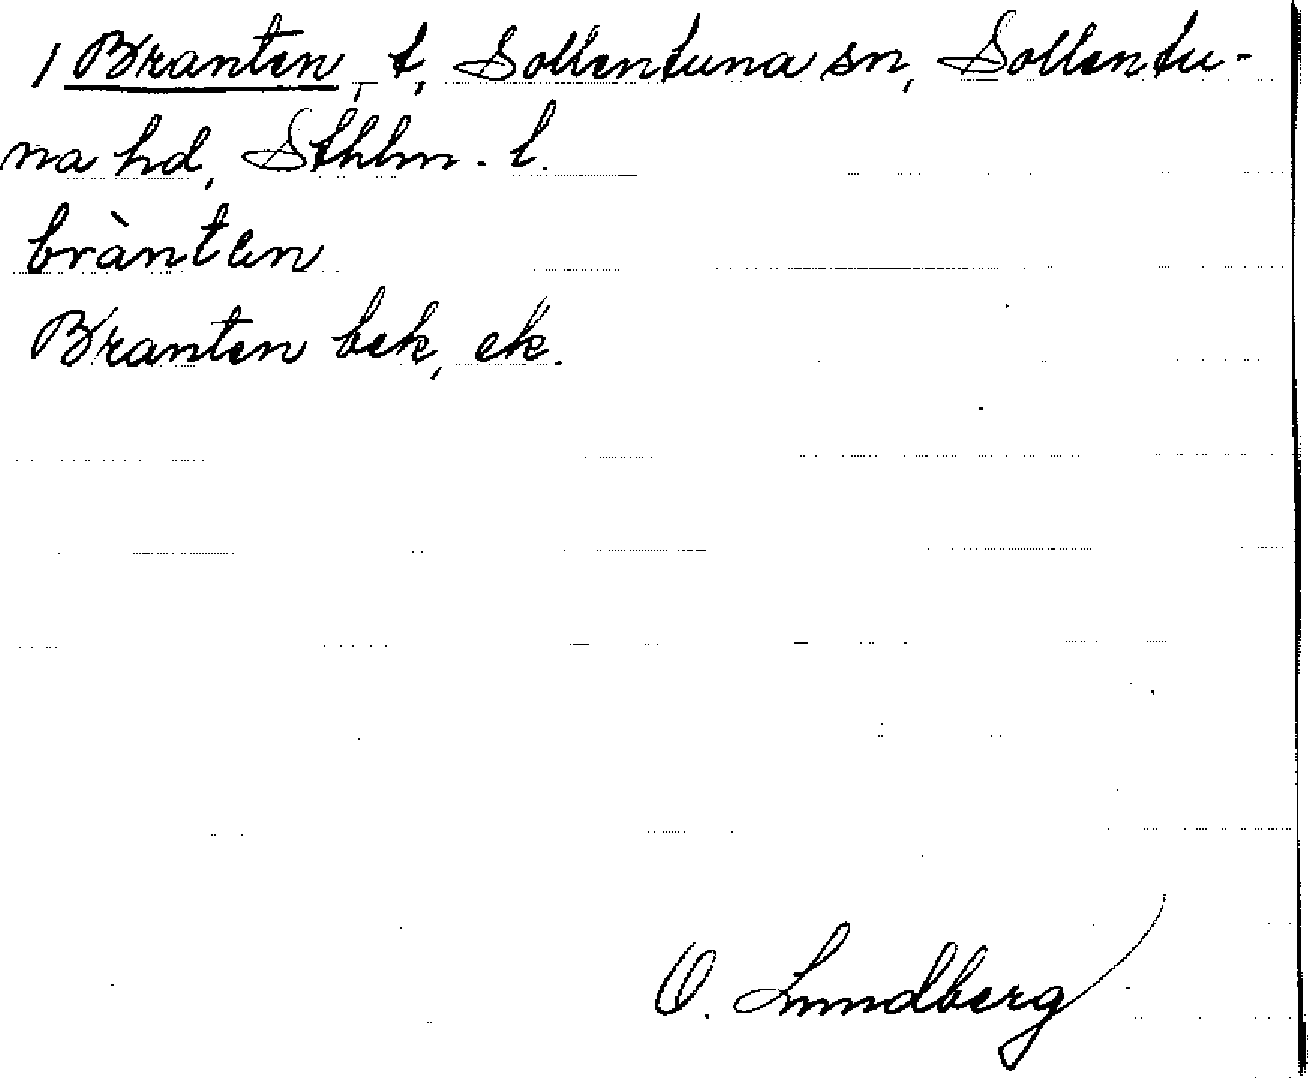 1 Branten, t, Sollentuna sn, Sollentu-
na hd, Sthlm. l.
bràntən
Branten bek, ek.
O. Lundberg